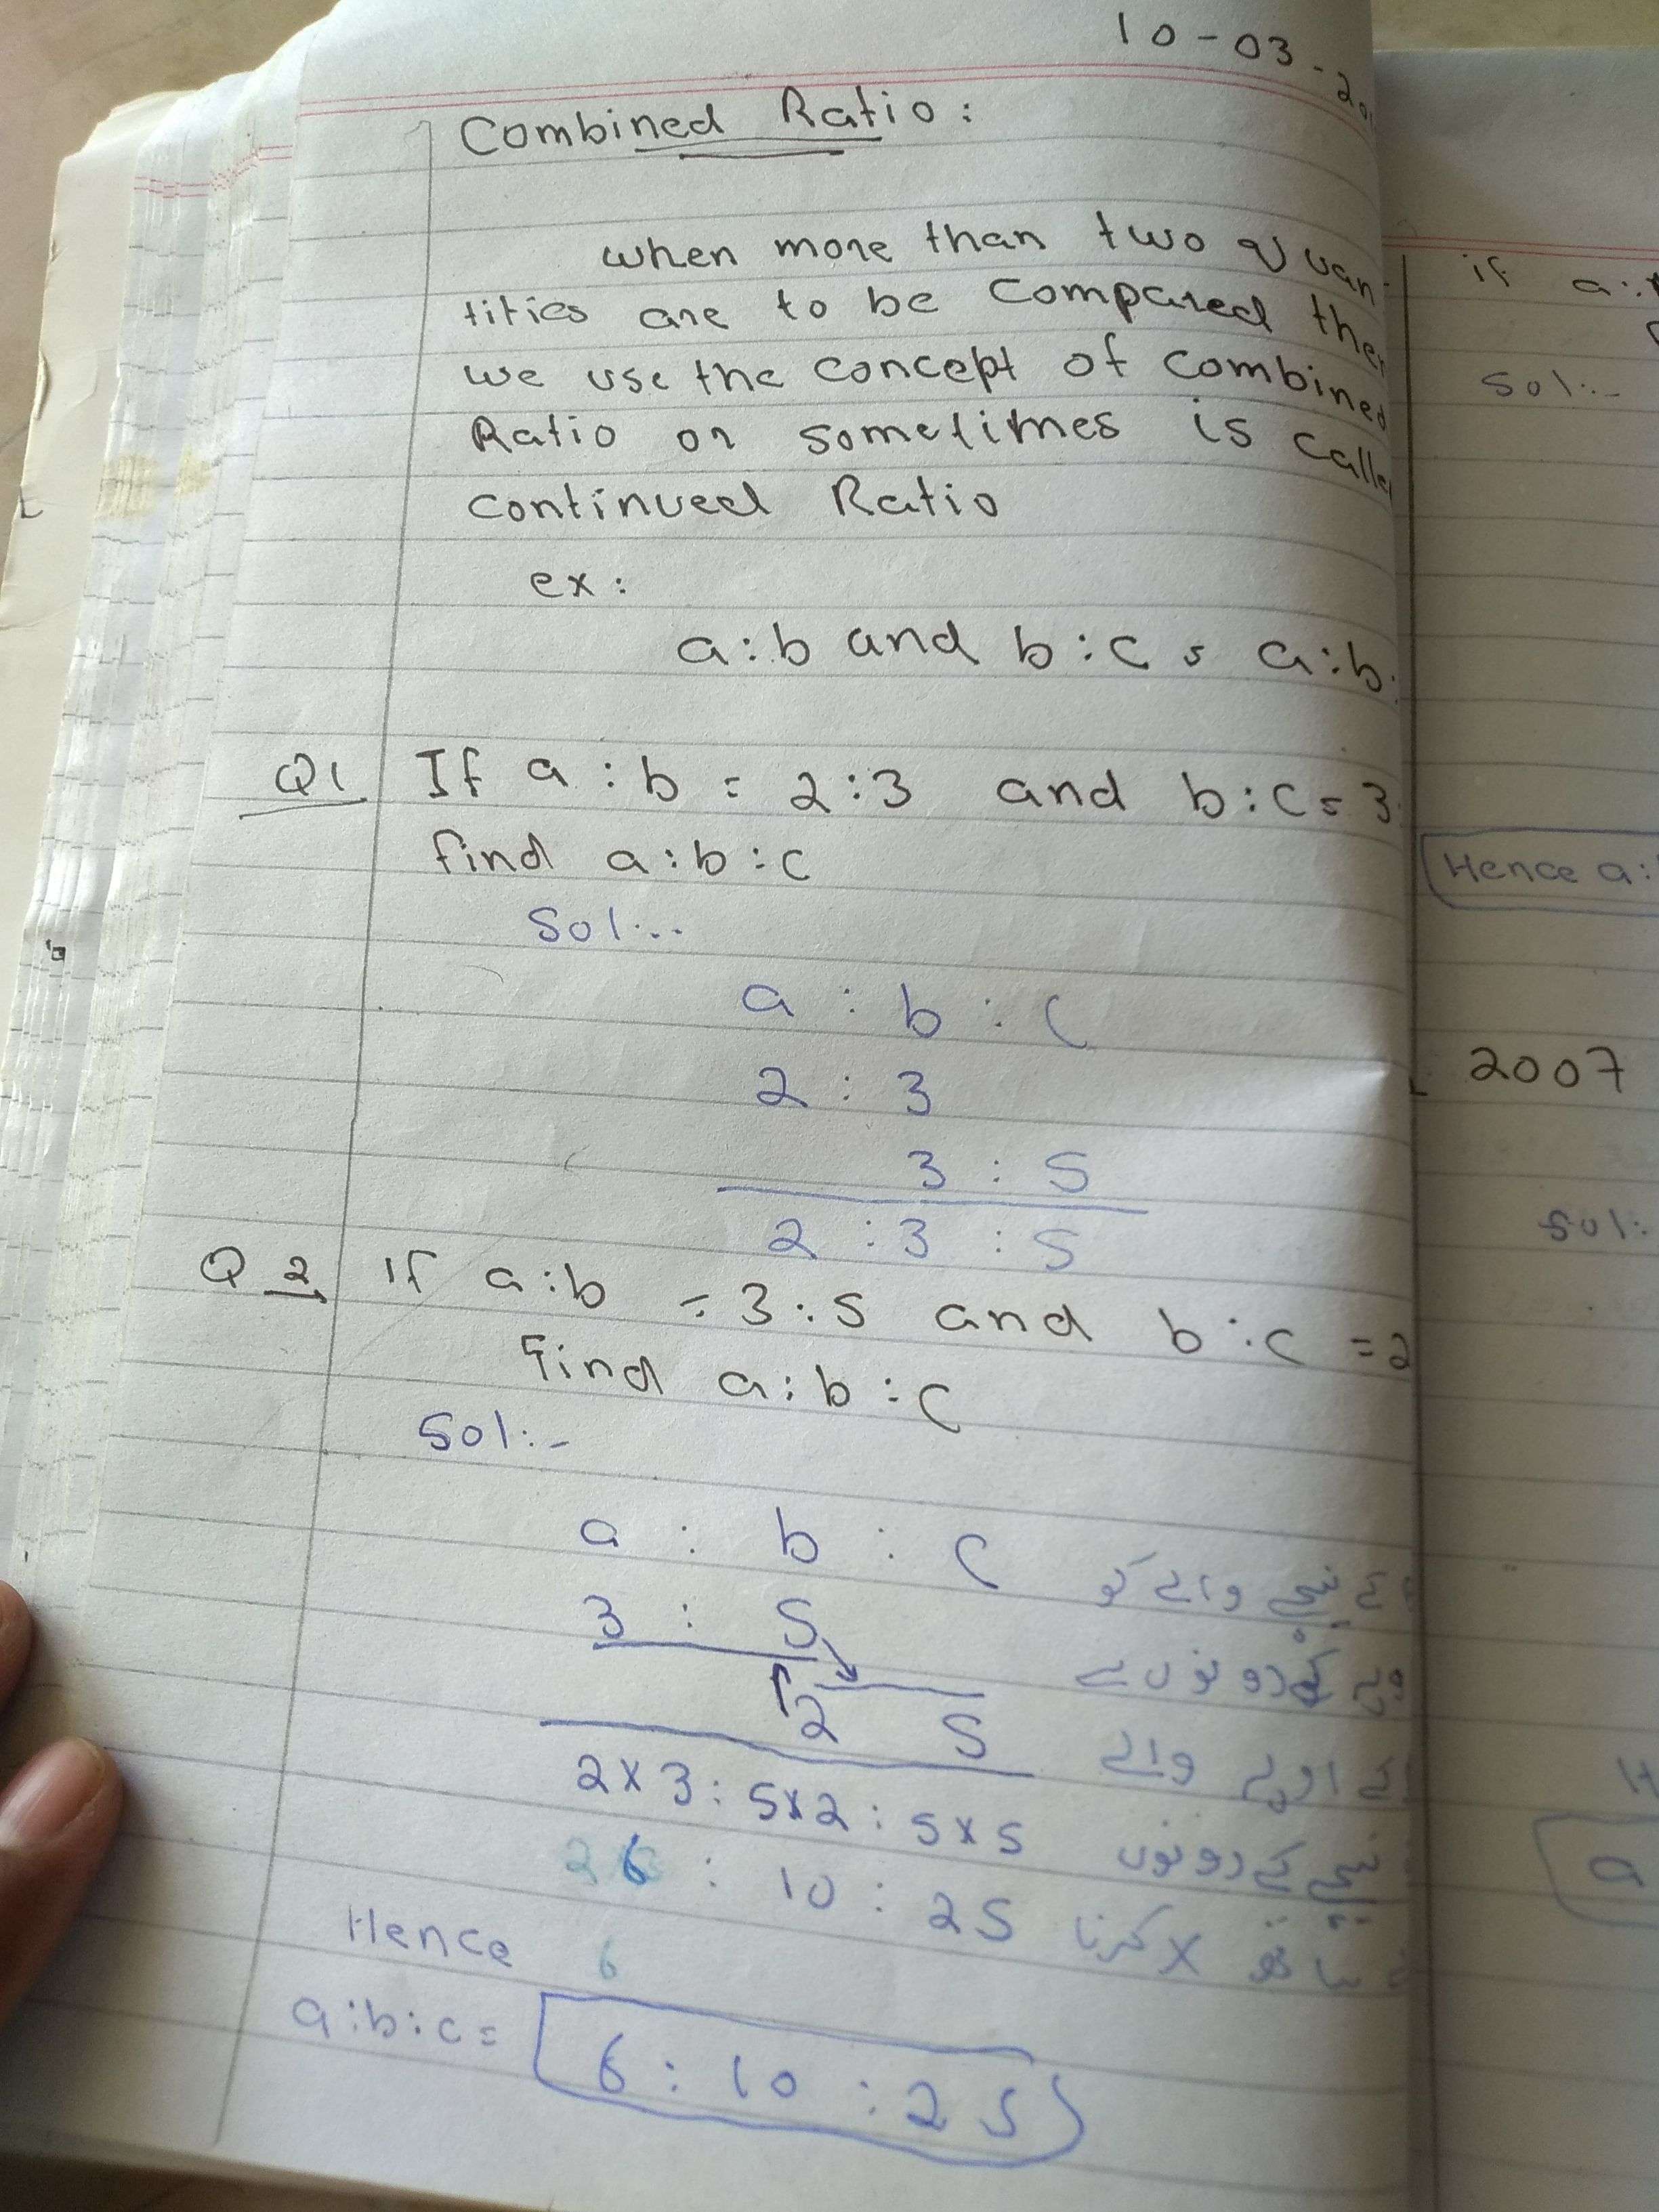 10-03-20
Combined Ratio:
when more than two quan
tities are to be compared the
we use the concept of combined
Ratio or sometimes is calle
continued Ratio
ex:
a:b and b:c = a:b:
Q1 If a:b = 2:3 and b:c = 3:
find a:b:c
Sol:-
a : b : c
2 : 3
3 : 5
2 : 3 : 5
Q 2 If a:b = 3:5 and b:c = 2
Find a:b:c
Sol:-
a : b : c
3 : 5
2 5
2x3 : 5x2 : 5x5
6 : 10 : 25
Hence 6
a:b:c = 6 : 10 : 25
نیچے والے کو
کے دونوں سے
اوپر والے
نیچے کے دونوں
ساتھ x کرنا
if a:
Sol:-
Hence a:
2007
Sol:
H
a